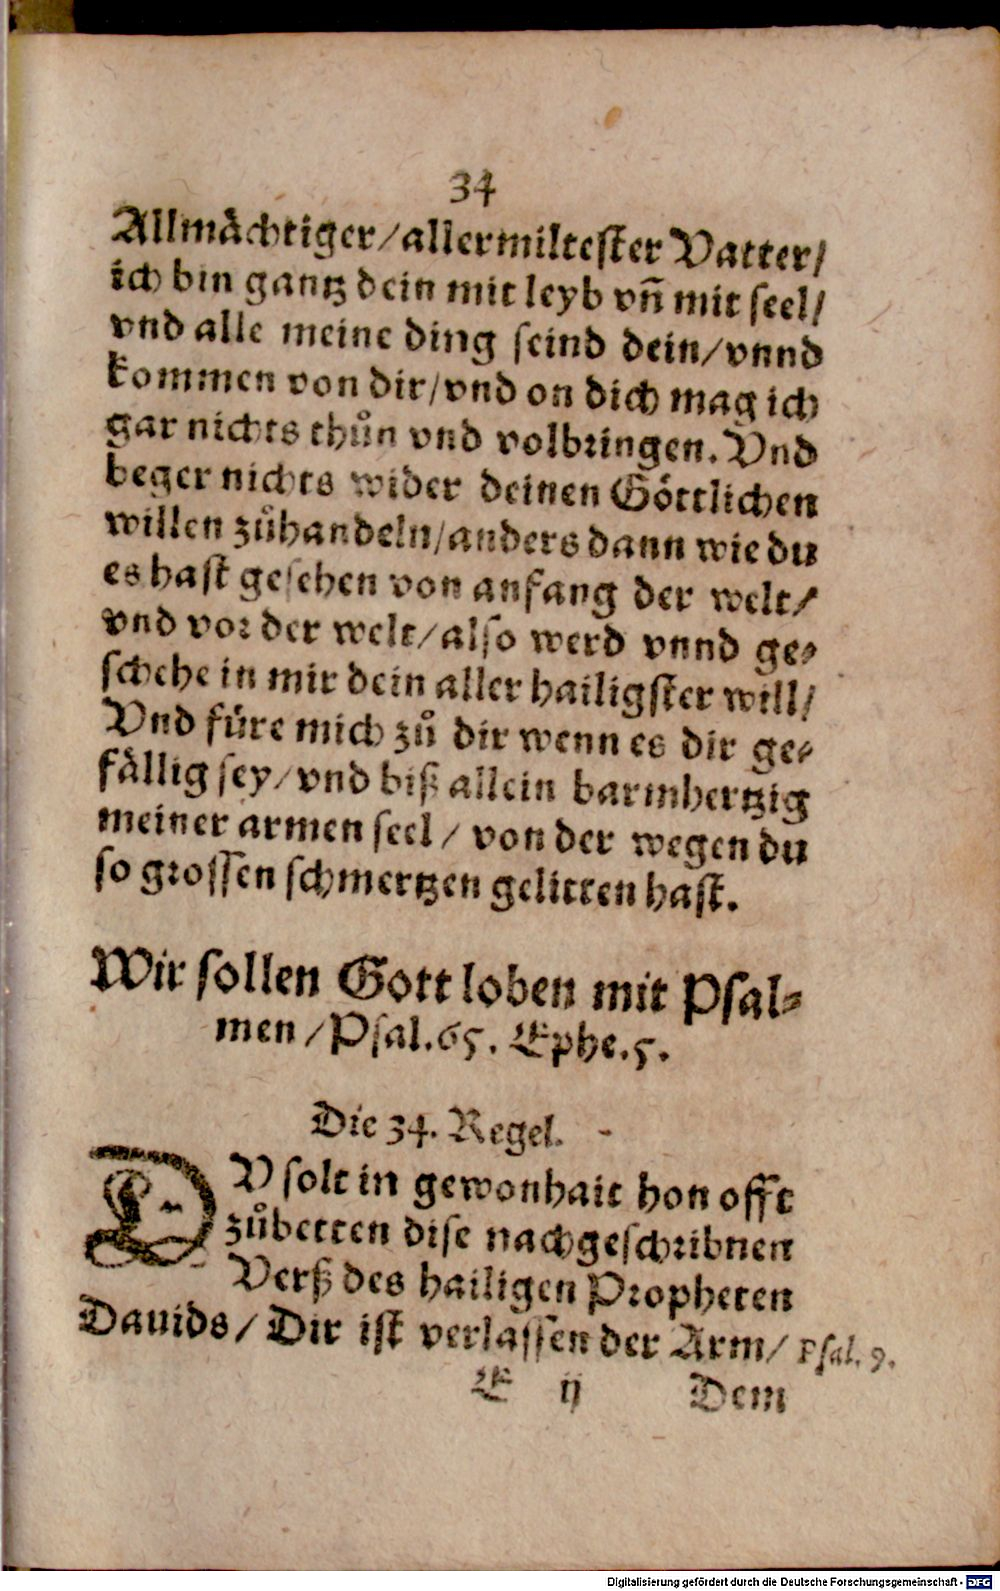 34
Allmächtiger/allermiltester Vatter/
ich bin gantz dein mit leyb vñ mit seel/
vnd alle meine ding seind dein/vnnd
kommen von dir/vnd on dich mag ich
gar nichts thůn vnd volbringen. Vnd
beger nichts wider deinen Göttlichen
willen zůhandeln/anders dann wie du
es hast gesehen von anfang der welt/
vnd vor der welt/also werd vnnd ge-
schehe in mir dein aller hailigster will/
Vnd füre mich zů dir wenn es dir ge-
fällig sey/vnd biß allein barmhertzig
meiner armen seel/ von der wegen du
so grossen schmertzen gelitten hast.
Wir sollen Gott loben mit Psal-
men/Psal.65. Ephe.5.
Die 34. Regel.
DV solt in gewonhait hon offt
zůbetten dise nachgeschribnen
Verß des hailigen Propheten
Dauids/ Dir ist verlassen der Arm/ Psal. 9.
E ij Dem
Digitalisierung gefördert durch die Deutsche Forschungsgemeinschaft - DFG